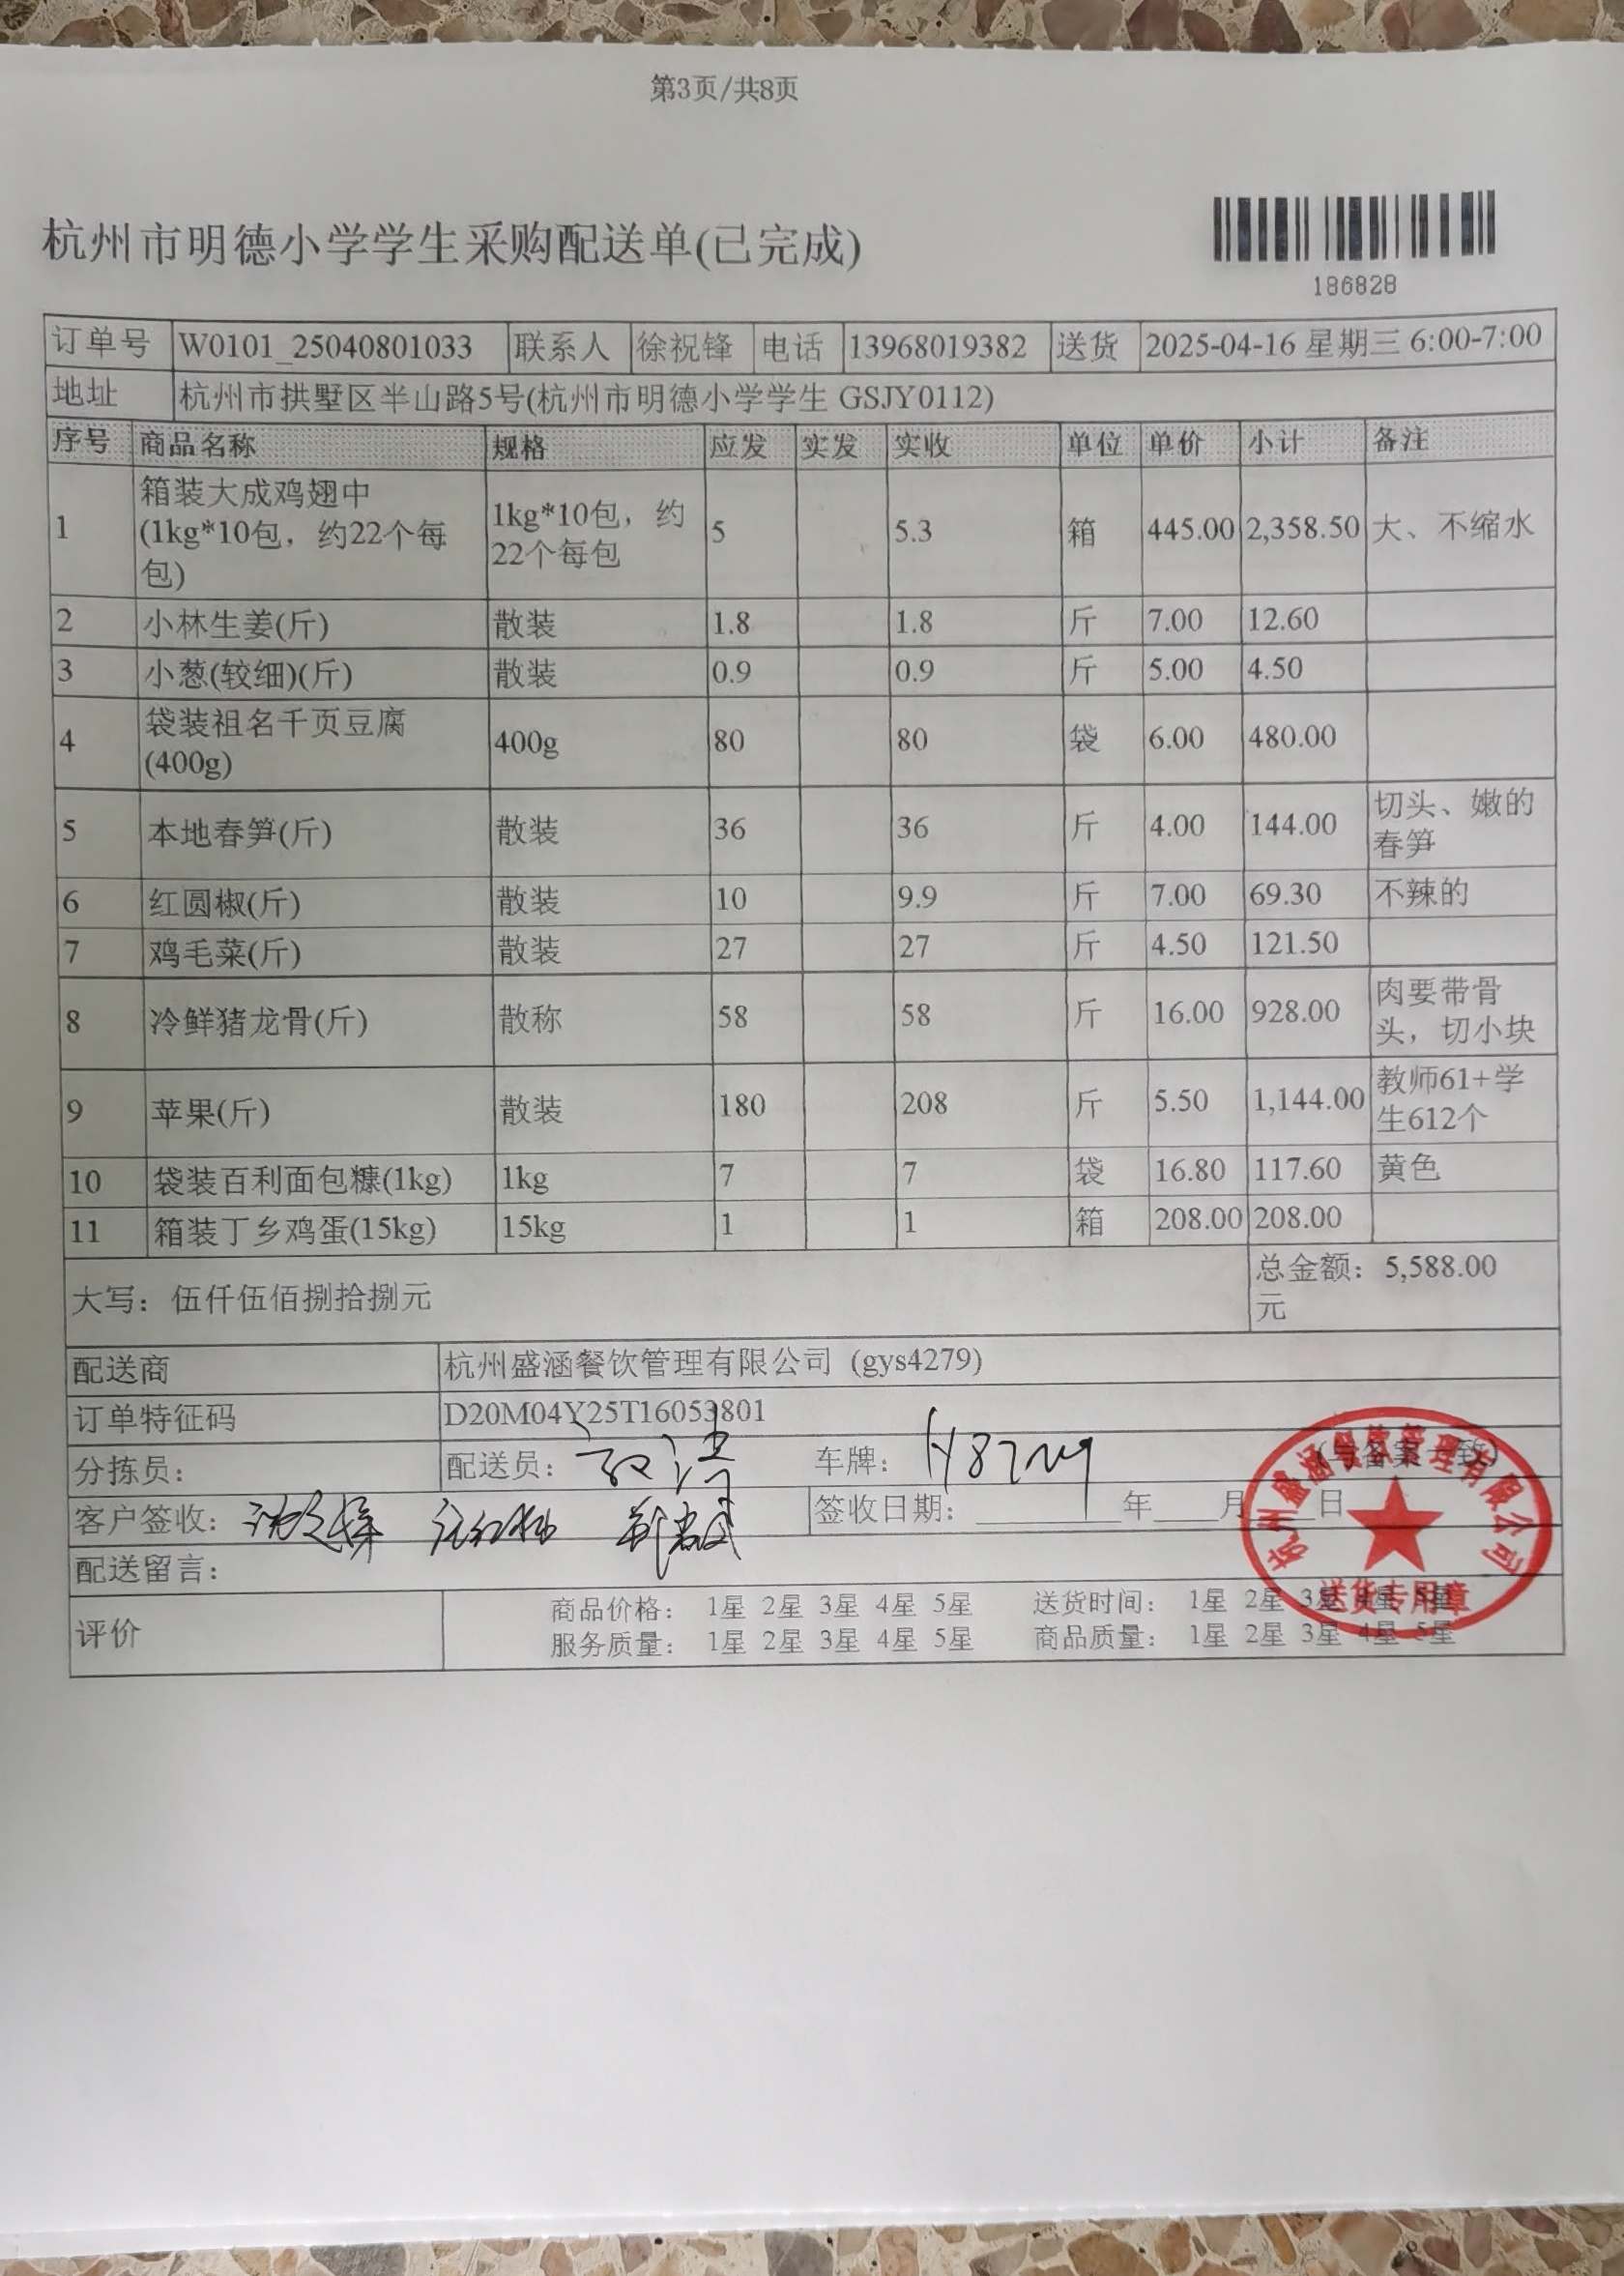 第3页/共8页
杭州市明德小学学生采购配送单(已完成)
186828
订单号 W0101_25040801033 联系人 徐祝锋 电话 13968019382 送货 2025-04-16 星期三 6:00-7:00
地址 杭州市拱墅区半山路5号(杭州市明德小学学生 GSJY0112)
序号 商品名称 规格 应发 实发 实收 单位 单价 小计 备注
1 箱装大成鸡翅中(1kg*10包，约22个每包) 1kg*10包，约22个每包 5 5.3 箱 445.00 2,358.50 大、不缩水
2 小林生姜(斤) 散装 1.8 1.8 斤 7.00 12.60
3 小葱(较细)(斤) 散装 0.9 0.9 斤 5.00 4.50
4 袋装祖名千页豆腐(400g) 400g 80 80 袋 6.00 480.00
5 本地春笋(斤) 散装 36 36 斤 4.00 144.00 切头、嫩的春笋
6 红圆椒(斤) 散装 10 9.9 斤 7.00 69.30 不辣的
7 鸡毛菜(斤) 散装 27 27 斤 4.50 121.50
8 冷鲜猪龙骨(斤) 散称 58 58 斤 16.00 928.00 肉要带骨头，切小块
9 苹果(斤) 散装 180 208 斤 5.50 1,144.00 教师61+学生612个
10 袋装百利面包糠(1kg) 1kg 7 7 袋 16.80 117.60 黄色
11 箱装丁乡鸡蛋(15kg) 15kg 1 1 箱 208.00 208.00
大写：伍仟伍佰捌拾捌元 总金额：5,588.00元
配送商 杭州盛涵餐饮管理有限公司 (gys4279)
订单特征码 D20M04Y25T16053801
分拣员： 配送员： 车牌： (与备案一致)
客户签收： 签收日期：____年____月____日
配送留言：
评价 商品价格： 1星 2星 3星 4星 5星 送货时间： 1星 2星 3星 4星 5星
服务质量： 1星 2星 3星 4星 5星 商品质量： 1星 2星 3星 4星 5星
杭州盛涵餐饮管理有限公司
送货专用章